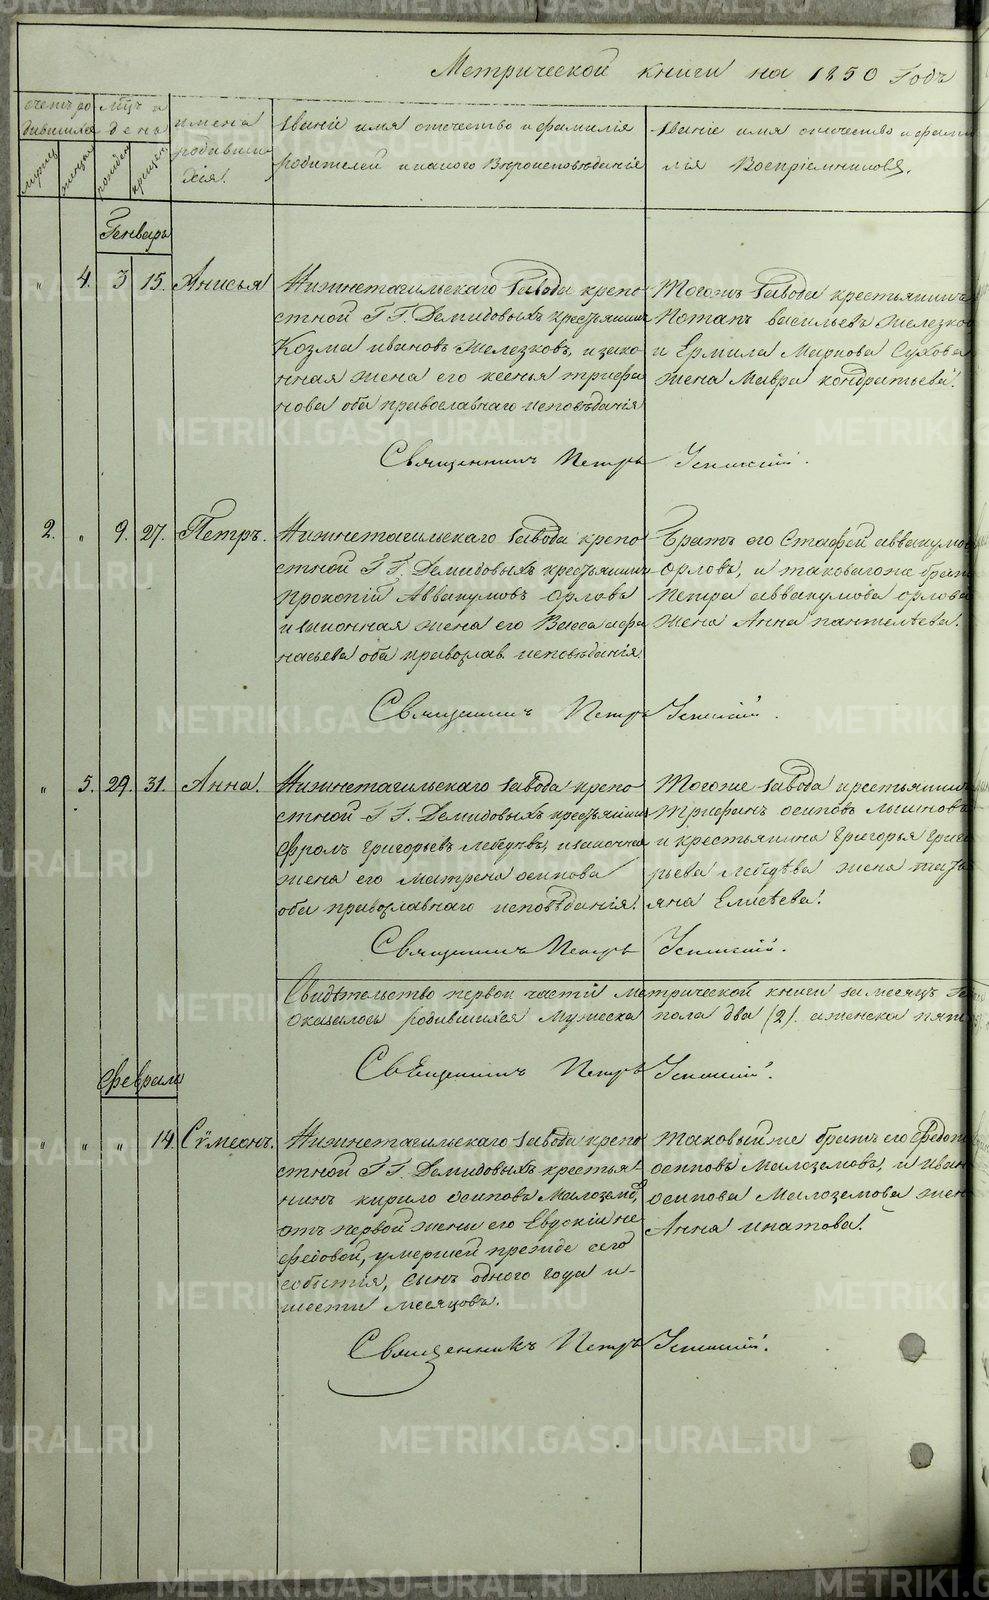 Метрической книги на 1850 Годъ
счетъ ро
дившихся
мужец
женщи
мцъ и
дена
рожден
крещен
имена
родивши
хся.
звание имя отечество и фамилія
родителей и какого Вероисповѣданія
звание имя отечество и фами
лія Воспріемниковъ.
Генварь
" 4. 3 15. Анисья
Нижнетагильскаго завода крепо
стной Г.Г. Демидовыхъ крестьянинъ
Козма ивановъ Железковъ, и зако
нная жена его ксенья трифа
нова оба православнаго исповѣданія
Тогожъ завода крестьянинъ
Потапъ васильевъ железков
и Ермила Маркова Сухова
жена Мавра кондратьева.
Священникъ Петръ
2. " 9. 27. Петръ.
Нижнетагильскаго завода крепо
стной Г.Г. Демидовыхъ крестьянинъ
прокопій Аввакумовъ орлова
и законная жена его Васса афа
насьева оба православ. исповѣданія.
Братъ его Стафей аввакумов
орловъ, и таковагоже брата
петра аввакумова орлова
жена Анна пантелѣева.
Священникъ Петръ
" 5. 29. 31. Анна.
Нижнетагильскаго завода крепо
стной Г.Г. Демидовыхъ крестьянинъ
Фролъ григорьевъ лебедевъ, и законная
жена его матрена осипова
оба православнаго исповѣданія.
Тогоже завода крестьянинъ
трифанъ осиповъ
и крестьянина григорья григо
рьева лебедева жена татья
яна Елисѣева.
Священникъ Петръ
Свидѣтельство первой части Метрической книги за месяцъ Ген
оказалось родившихся Мужеска пола два (2). а женска пять
Священникъ Петръ
февраль
" " " 14 Сѵмеонъ.
Нижнетагильскаго завода крепо
стной Г.Г. Демидовыхъ крестья
нинъ кирило осиповъ Малоземовъ,
отъ первой жены его Евдокіи не
федовой, умершей прежде сего
события, сынъ одного года и
шести месяцовъ.
таковыйже братъ его Федотъ
осиповъ Малоземовъ, и иван
осипова Малоземова жен
Анна ипатова.
Священникъ Петръ
METRIKI.GASO-URAL.RU